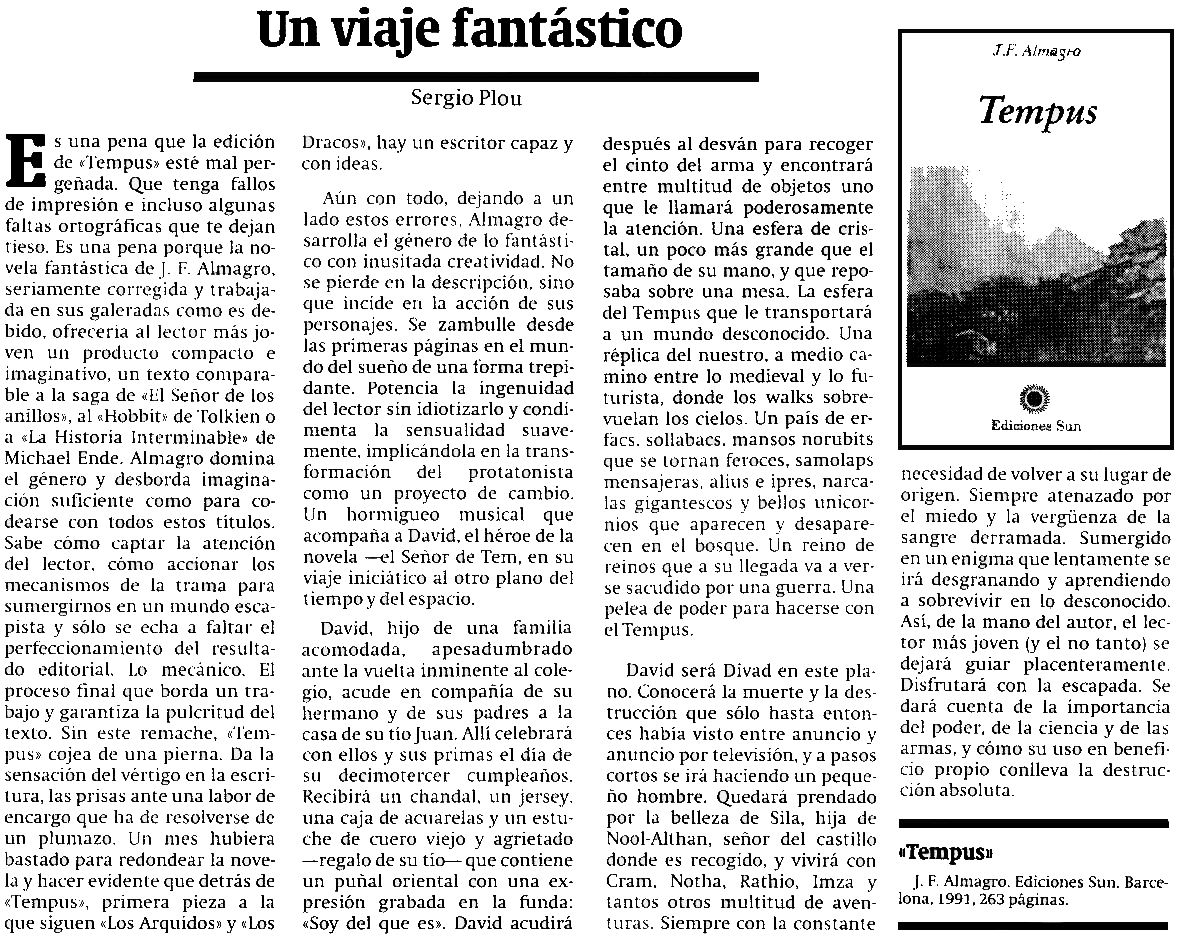 Un viaje fantástico
Sergio Plou
Es una pena que la edición
de «Tempus» esté mal per-
geñada. Que tenga fallos
de impresión e incluso algunas
faltas ortográficas que te dejan
tieso. Es una pena porque la no-
vela fantástica de J. F. Almagro,
seriamente corregida y trabaja-
da en sus galeradas como es de-
bido, ofrecería al lector más jo-
ven un producto compacto e
imaginativo, un texto compara-
ble a la saga de «El Señor de los
anillos», al «Hobbit» de Tolkien o
a «La Historia Interminable» de
Michael Ende. Almagro domina
el género y desborda imagina-
ción suficiente como para co-
dearse con todos estos títulos.
Sabe cómo captar la atención
del lector, cómo accionar los
mecanismos de la trama para
sumergirnos en un mundo esca-
pista y sólo se echa a faltar el
perfeccionamiento del resulta-
do editorial. Lo mecánico. El
proceso final que borda un tra-
bajo y garantiza la pulcritud del
texto. Sin este remache, «Tem-
pus» cojea de una pierna. Da la
sensación del vértigo en la escri-
tura, las prisas ante una labor de
encargo que ha de resolverse de
un plumazo. Un mes hubiera
bastado para redondear la nove-
la y hacer evidente que detrás de
«Tempus», primera pieza a la
que siguen «Los Arquidos» y «Los
Dracos», hay un escritor capaz y
con ideas.
Aún con todo, dejando a un
lado estos errores, Almagro de-
sarrolla el género de lo fantásti-
co con inusitada creatividad. No
se pierde en la descripción, sino
que incide en la acción de sus
personajes. Se zambulle desde
las primeras páginas en el mun-
do del sueño de una forma trepi-
dante. Potencia la ingenuidad
del lector sin idiotizarlo y condi-
menta la sensualidad suave-
mente, implicándola en la trans-
formación del protatonista
como un proyecto de cambio.
Un hormigueo musical que
acompaña a David, el héroe de la
novela —el Señor de Tem, en su
viaje iniciático al otro plano del
tiempo y del espacio.
David, hijo de una familia
acomodada, apesadumbrado
ante la vuelta inminente al cole-
gio, acude en compañía de su
hermano y de sus padres a la
casa de su tío Juan. Allí celebrará
con ellos y sus primas el día de
su decimotercer cumpleaños.
Recibirá un chandal, un jersey,
una caja de acuarelas y un estu-
che de cuero viejo y agrietado
—regalo de su tío— que contiene
un puñal oriental con una ex-
presión grabada en la funda:
«Soy del que es». David acudirá
después al desván para recoger
el cinto del arma y encontrará
entre multitud de objetos uno
que le llamará poderosamente
la atención. Una esfera de cris-
tal, un poco más grande que el
tamaño de su mano, y que repo-
saba sobre una mesa. La esfera
del Tempus que le transportará
a un mundo desconocido. Una
réplica del nuestro, a medio ca-
mino entre lo medieval y lo fu-
turista, donde los walks sobre-
vuelan los cielos. Un país de er-
facs, sollabacs, mansos norubits
que se tornan feroces, samolaps
mensajeras, alius e ipres, narca-
las gigantescos y bellos unicor-
nios que aparecen y desapare-
cen en el bosque. Un reino de
reinos que a su llegada va a ver-
se sacudido por una guerra. Una
pelea de poder para hacerse con
el Tempus.
David será Divad en este pla-
no. Conocerá la muerte y la des-
trucción que sólo hasta enton-
ces había visto entre anuncio y
anuncio por televisión, y a pasos
cortos se irá haciendo un peque-
ño hombre. Quedará prendado
por la belleza de Sila, hija de
Nool-Althan, señor del castillo
donde es recogido, y vivirá con
Cram, Notha, Rathio, Imza y
tantos otros multitud de aven-
turas. Siempre con la constante
J.F. Almagro
Tempus
Ediciones Sun
necesidad de volver a su lugar de
origen. Siempre atenazado por
el miedo y la vergüenza de la
sangre derramada. Sumergido
en un enigma que lentamente se
irá desgranando y aprendiendo
a sobrevivir en lo desconocido.
Así, de la mano del autor, el lec-
tor más joven (y el no tanto) se
dejará guiar placenteramente.
Disfrutará con la escapada. Se
dará cuenta de la importancia
del poder, de la ciencia y de las
armas, y cómo su uso en benefi-
cio propio conlleva la destruc-
ción absoluta.
«Tempus»
J. F. Almagro. Ediciones Sun. Barce-
lona, 1991, 263 páginas.